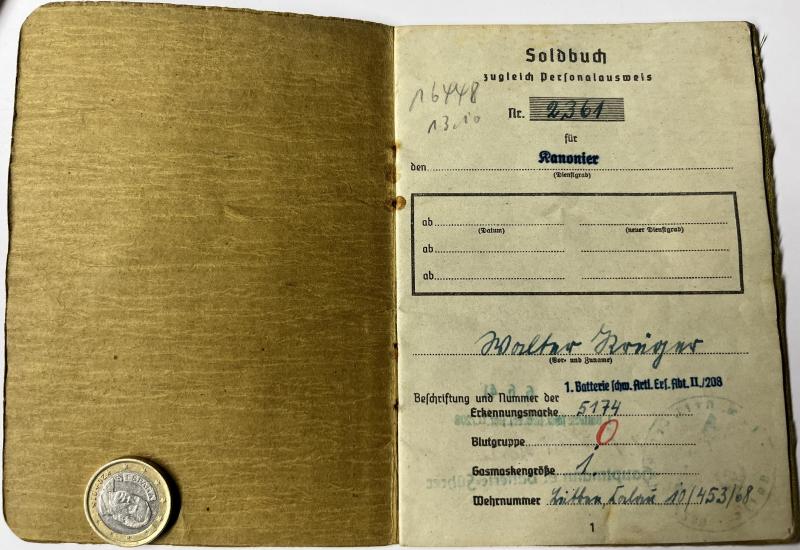 Soldbuch
zugleich Personalausweis
16448
13.10
Nr. 2361
für
den Kanonier
(Dienstgrad)
ab
(Datum) (neuer Dienstgrad)
ab
ab
Walter Krüger
(Vor- und Zuname)
1. Batterie schw. Artl. Ers. Abt. II./208
Beschriftung und Nummer der
Erkennungsmarke 5174
Blutgruppe O
Gasmaskengröße 1.
Wehrnummer Calau 10/453/68
1
ESPAÑA